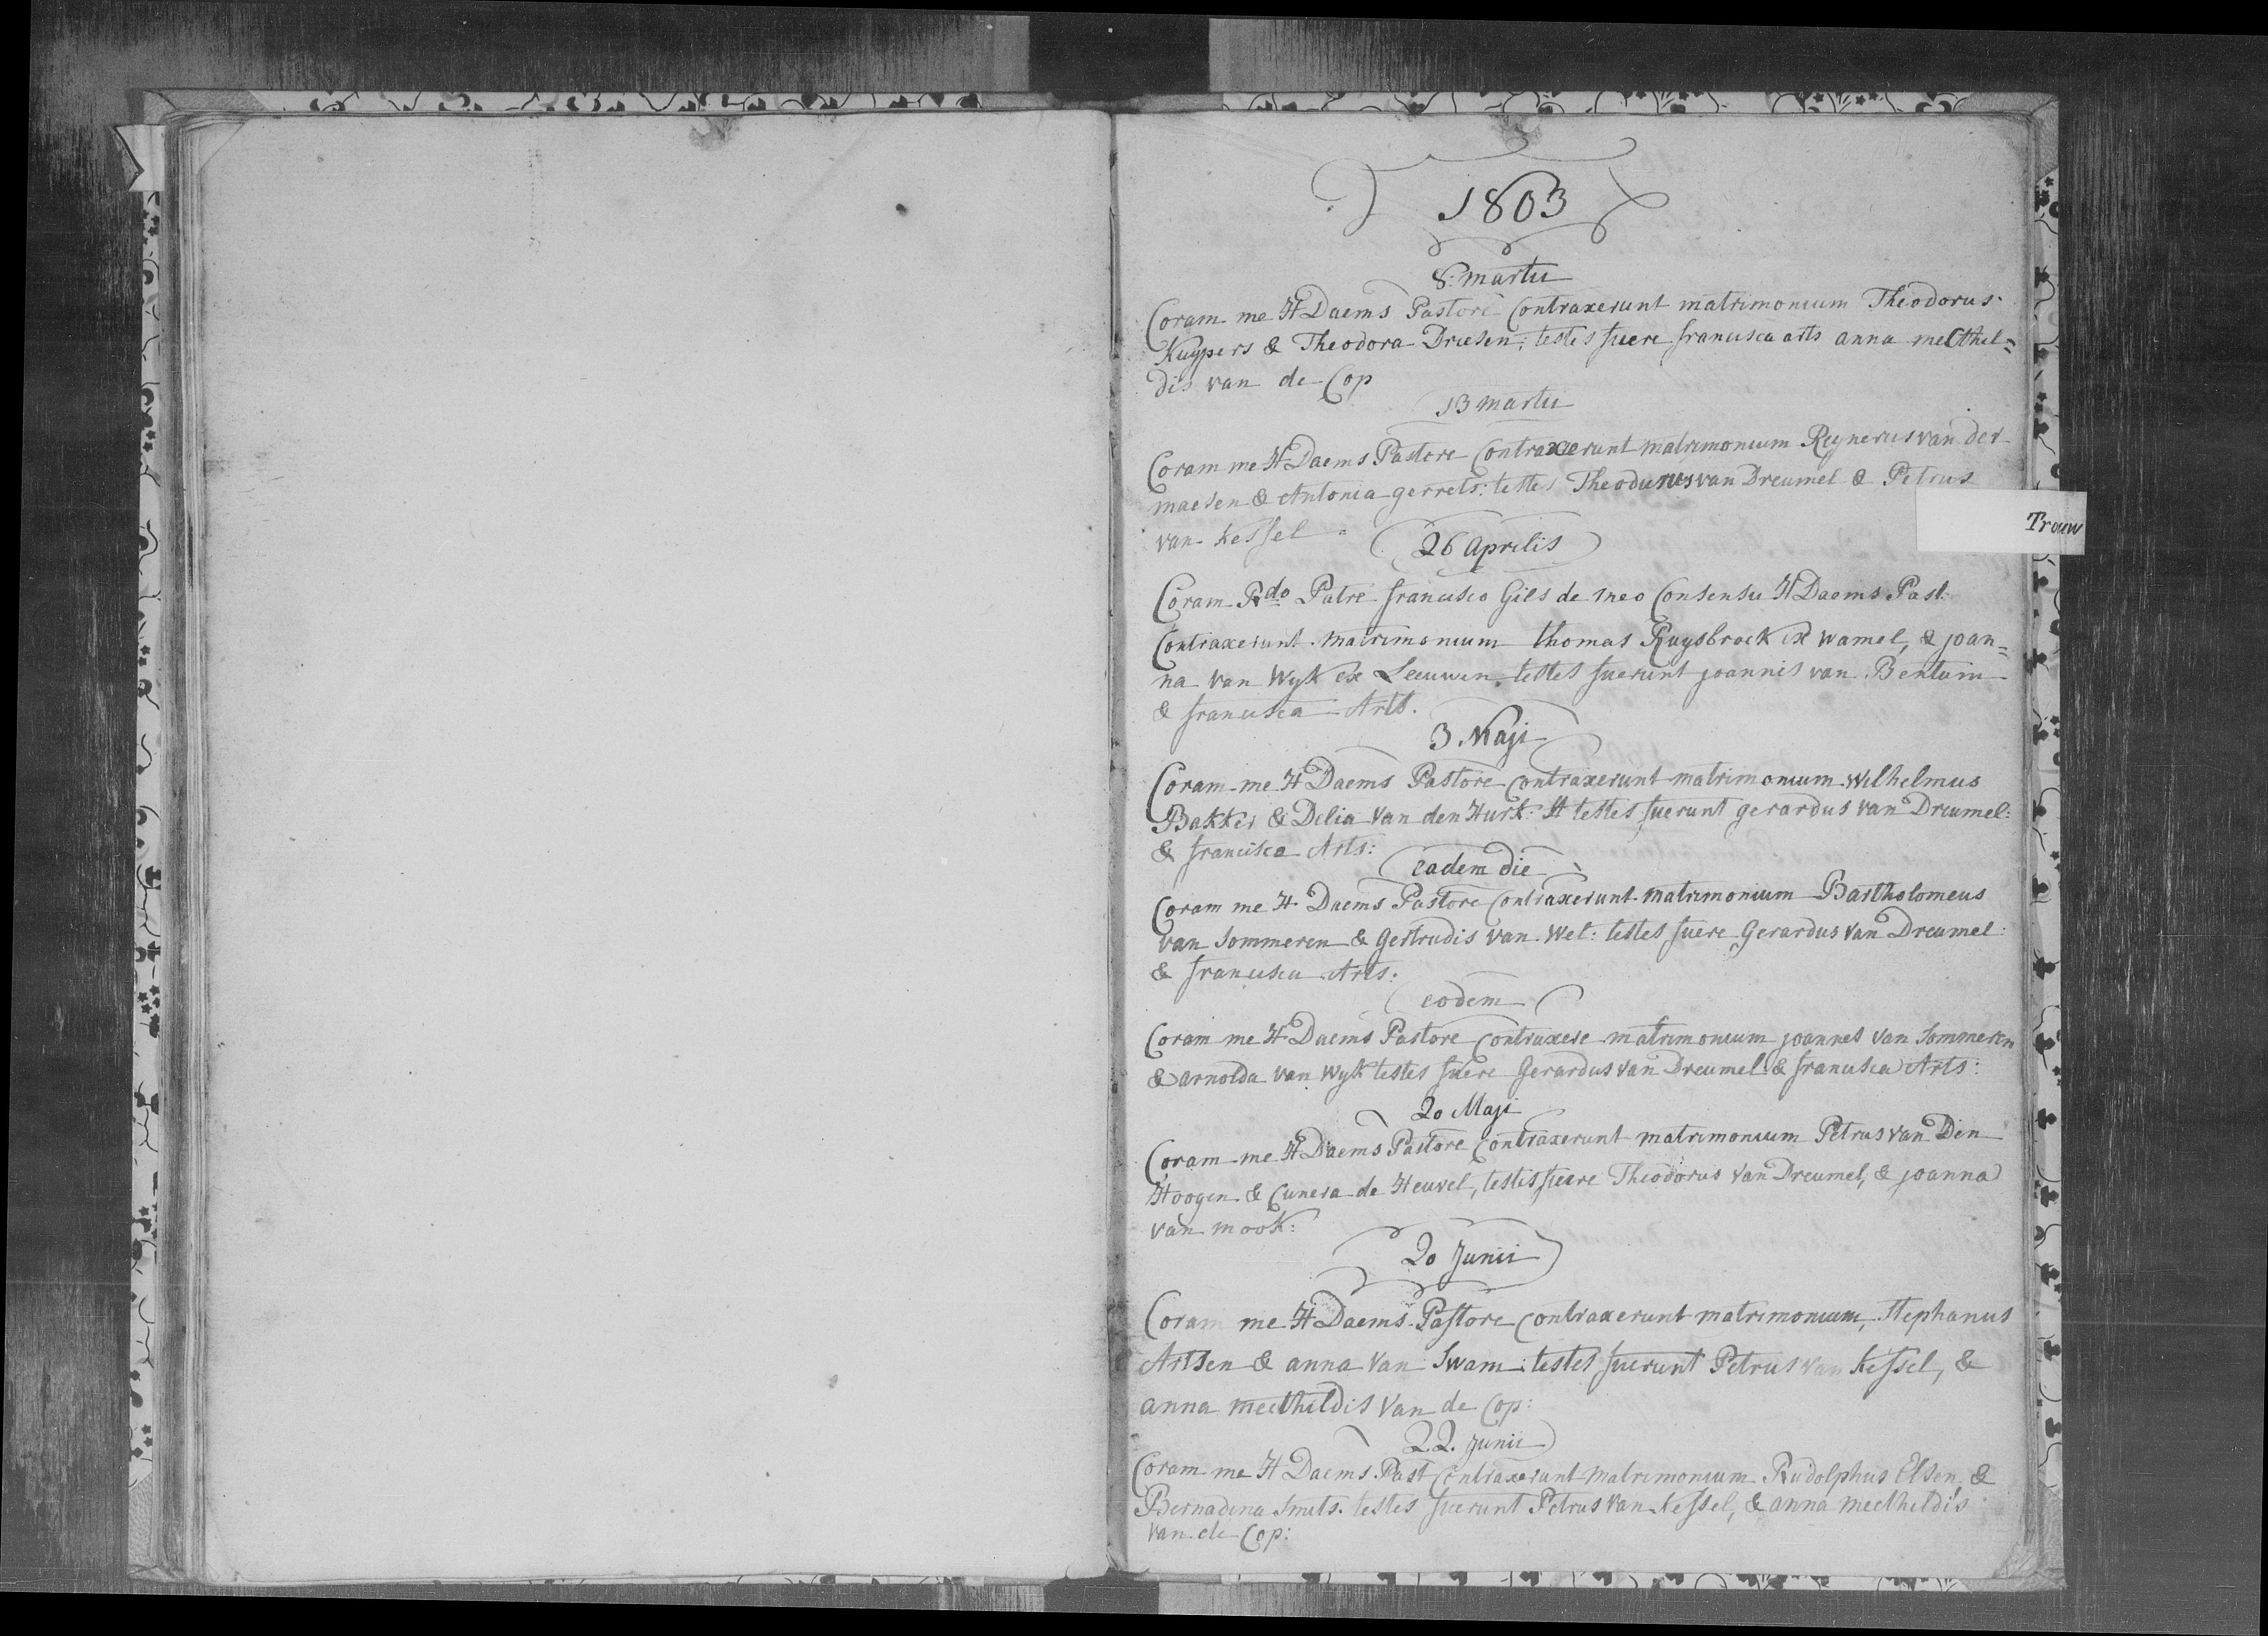 1803
8. martii
Coram me H Daems Pastore Contraxerunt matrimonium Theodorus
Kuypers & Theodora Driesen; testes fuere francisca arts anna mechthel=
dis van de Cop
13 martii
Coram me H Daems Pastore Contraxerunt matrimonium Reynerus van der
maesen & Antonia gerrets: testes Theodurus van Dreumel & Petrus
van Kessel
Trouw
26 Aprilis
Coram Rdo Patre francisco Gils de meo Consensu H Daems Past:
Contraxerunt matrimonium thomas Ruysbroek ex wamel, & joan=
na van Wyk ex Leeuwen. testes fuerunt joannis van Bentum
& francisca Arts.
3 Maji
Coram me H Daems Pastore contraxerunt matrimonium Wilhelmus
Bakker & Delia van den Hurk: testes fuerunt gerardus van Dreumel:
& francisca Arts:
eadem die
Coram me H. Daems Pastore Contraxerunt matrimonium Bartholomeus
van Sommeren & Gertrudis van Wel: testes fuere Gerardus van Dreumel:
& francisca Arts:
eodem
Coram me H Daems Pastore Contraxere matrimonium joannes van Sommeren
& arnolda van Wyk testes fuere Gerardus van Dreumel & francisca Arts:
20 Maji
Coram me H Daems Pastore Contraxerunt matrimonium Petrus van Den
Hoogen & Cunera de Heuvel, testes fuere Theodorus van Dreumel, & joanna
van mook:
20 Junii
Coram me H Daems Pastore Contraxerunt matrimonium, Stephanus
Artsen & anna van Swam: testes fuerunt Petrus van Kessel, &
anna mecthildis van de Cop:
22. Junii
Coram me H Daems Past Contraxerunt matrimonium Rudolphus Elsen &
Bernadina Smits. testes fuerunt Petrus van Kessel, & anna mecthildis
van de Cop: